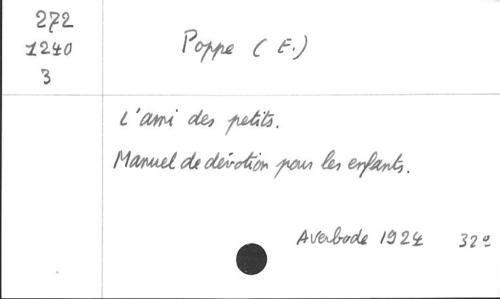 272
1240
3
Poppe (E.)
L'ami des petits.
Manuel de dévotion pour les enfants.
Averbode 1924 32º